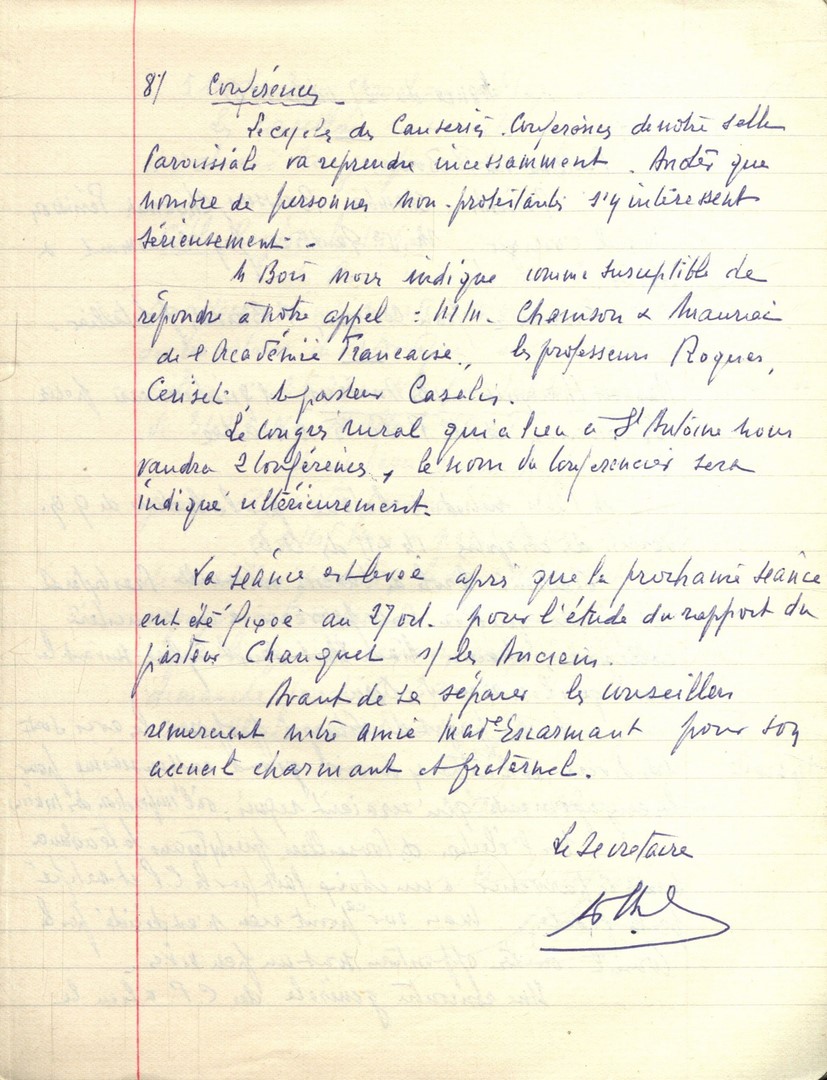 8°/ Conférences
Le cycle des Causeries Conférences de notre salle
Paroissiale va reprendre incessamment. que
nombre de personnes non-protestantes s'y intéressent
sérieusement.
M Bois nous indique comme susceptible de
répondre à notre appel : MM. Chamson & Mauriac
de l'Académie Francaise, les professeurs Roques,
le pasteur Casalis.
Le Congrès rural qui a lieu à St Antoine nous
vaudra 2 Conférences, le nom du Conférencier sera
indiqué ultérieurement.
La séance est levée après que la prochaine séance
ent été fixée au 27 oct. pour l'étude du rapport du
pasteur s/ les Anciens.
Avant de se séparer les conseillers
remercient notre amie Made Escarmant pour son
accueil charmant et fraternel.
Le Secrétaire